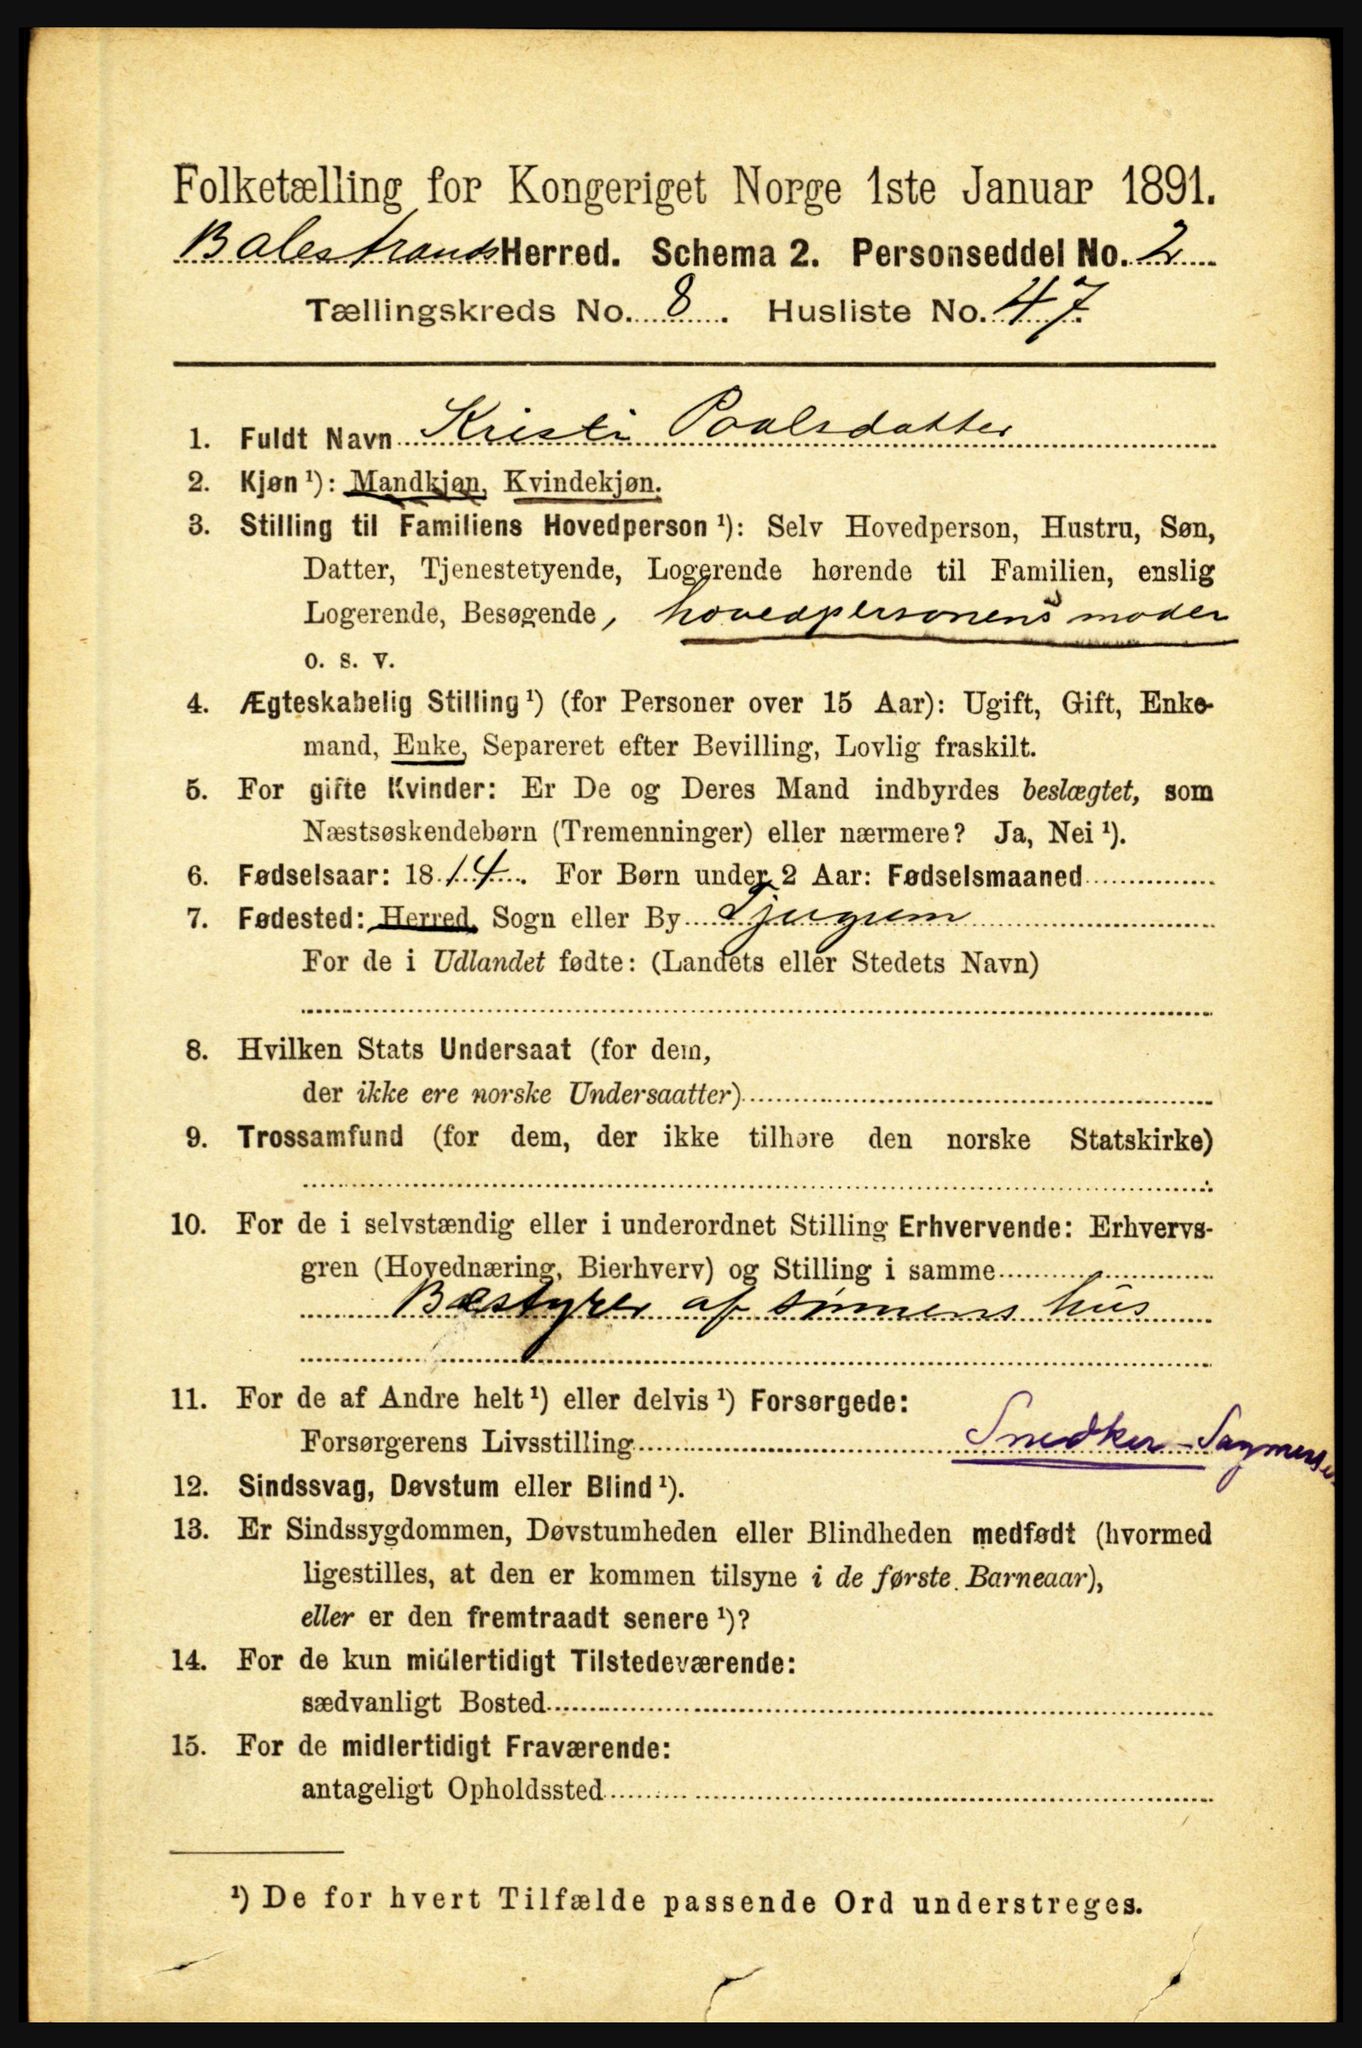 Folketælling for Kongeriget Norge 1ste Januar 1891.
Balestrands Herred. Schema 2. Personseddel No. 2
Tællingskreds No. 8. Husliste No. 47
1. Fuldt Navn Kristi Poalsdatter
2. Kjøn ¹): Mandkjøn, Kvindekjøn.
3. Stilling til Familiens Hovedperson ¹): Selv Hovedperson, Hustru, Søn,
Datter, Tjenestetyende, Logerende hørende til Familien, enslig
Logerende, Besøgende, hovedpersonens moder
o. s. v.
4. Ægteskabelig Stilling ¹) (for Personer over 15 Aar): Ugift, Gift, Enke-
mand, Enke, Separeret efter Bevilling, Lovlig fraskilt.
5. For gifte Kvinder: Er De og Deres Mand indbyrdes beslægtet, som
Næstsøskendebørn (Tremenninger) eller nærmere? Ja, Nei ¹).
6. Fødselsaar: 1814. For Børn under 2 Aar: Fødselsmaaned
7. Fødested: Herred, Sogn eller By Tjugum
For de i Udlandet fødte: (Landets eller Stedets Navn)
8. Hvilken Stats Undersaat (for dem,
der ikke ere norske Undersaatter)
9. Trossamfund (for dem, der ikke tilhøre den norske Statskirke)
10. For de i selvstændig eller i underordnet Stilling Erhvervende: Erhvervs-
gren (Hovednæring, Bierhverv) og Stilling i samme
Bestyrer af sønnens hus
11. For de af Andre helt ¹) eller delvis ¹) Forsørgede:
Forsørgerens Livsstilling Snedker -
12. Sindssvag, Døvstum eller Blind ¹).
13. Er Sindssygdommen, Døvstumheden eller Blindheden medfødt (hvormed
ligestilles, at den er kommen tilsyne i de første Barneaar),
eller er den fremtraadt senere ¹)?
14. For de kun midlertidigt Tilstedeværende:
sædvanligt Bosted
15. For de midlertidigt Fraværende:
antageligt Opholdssted
¹) De for hvert Tilfælde passende Ord understreges.